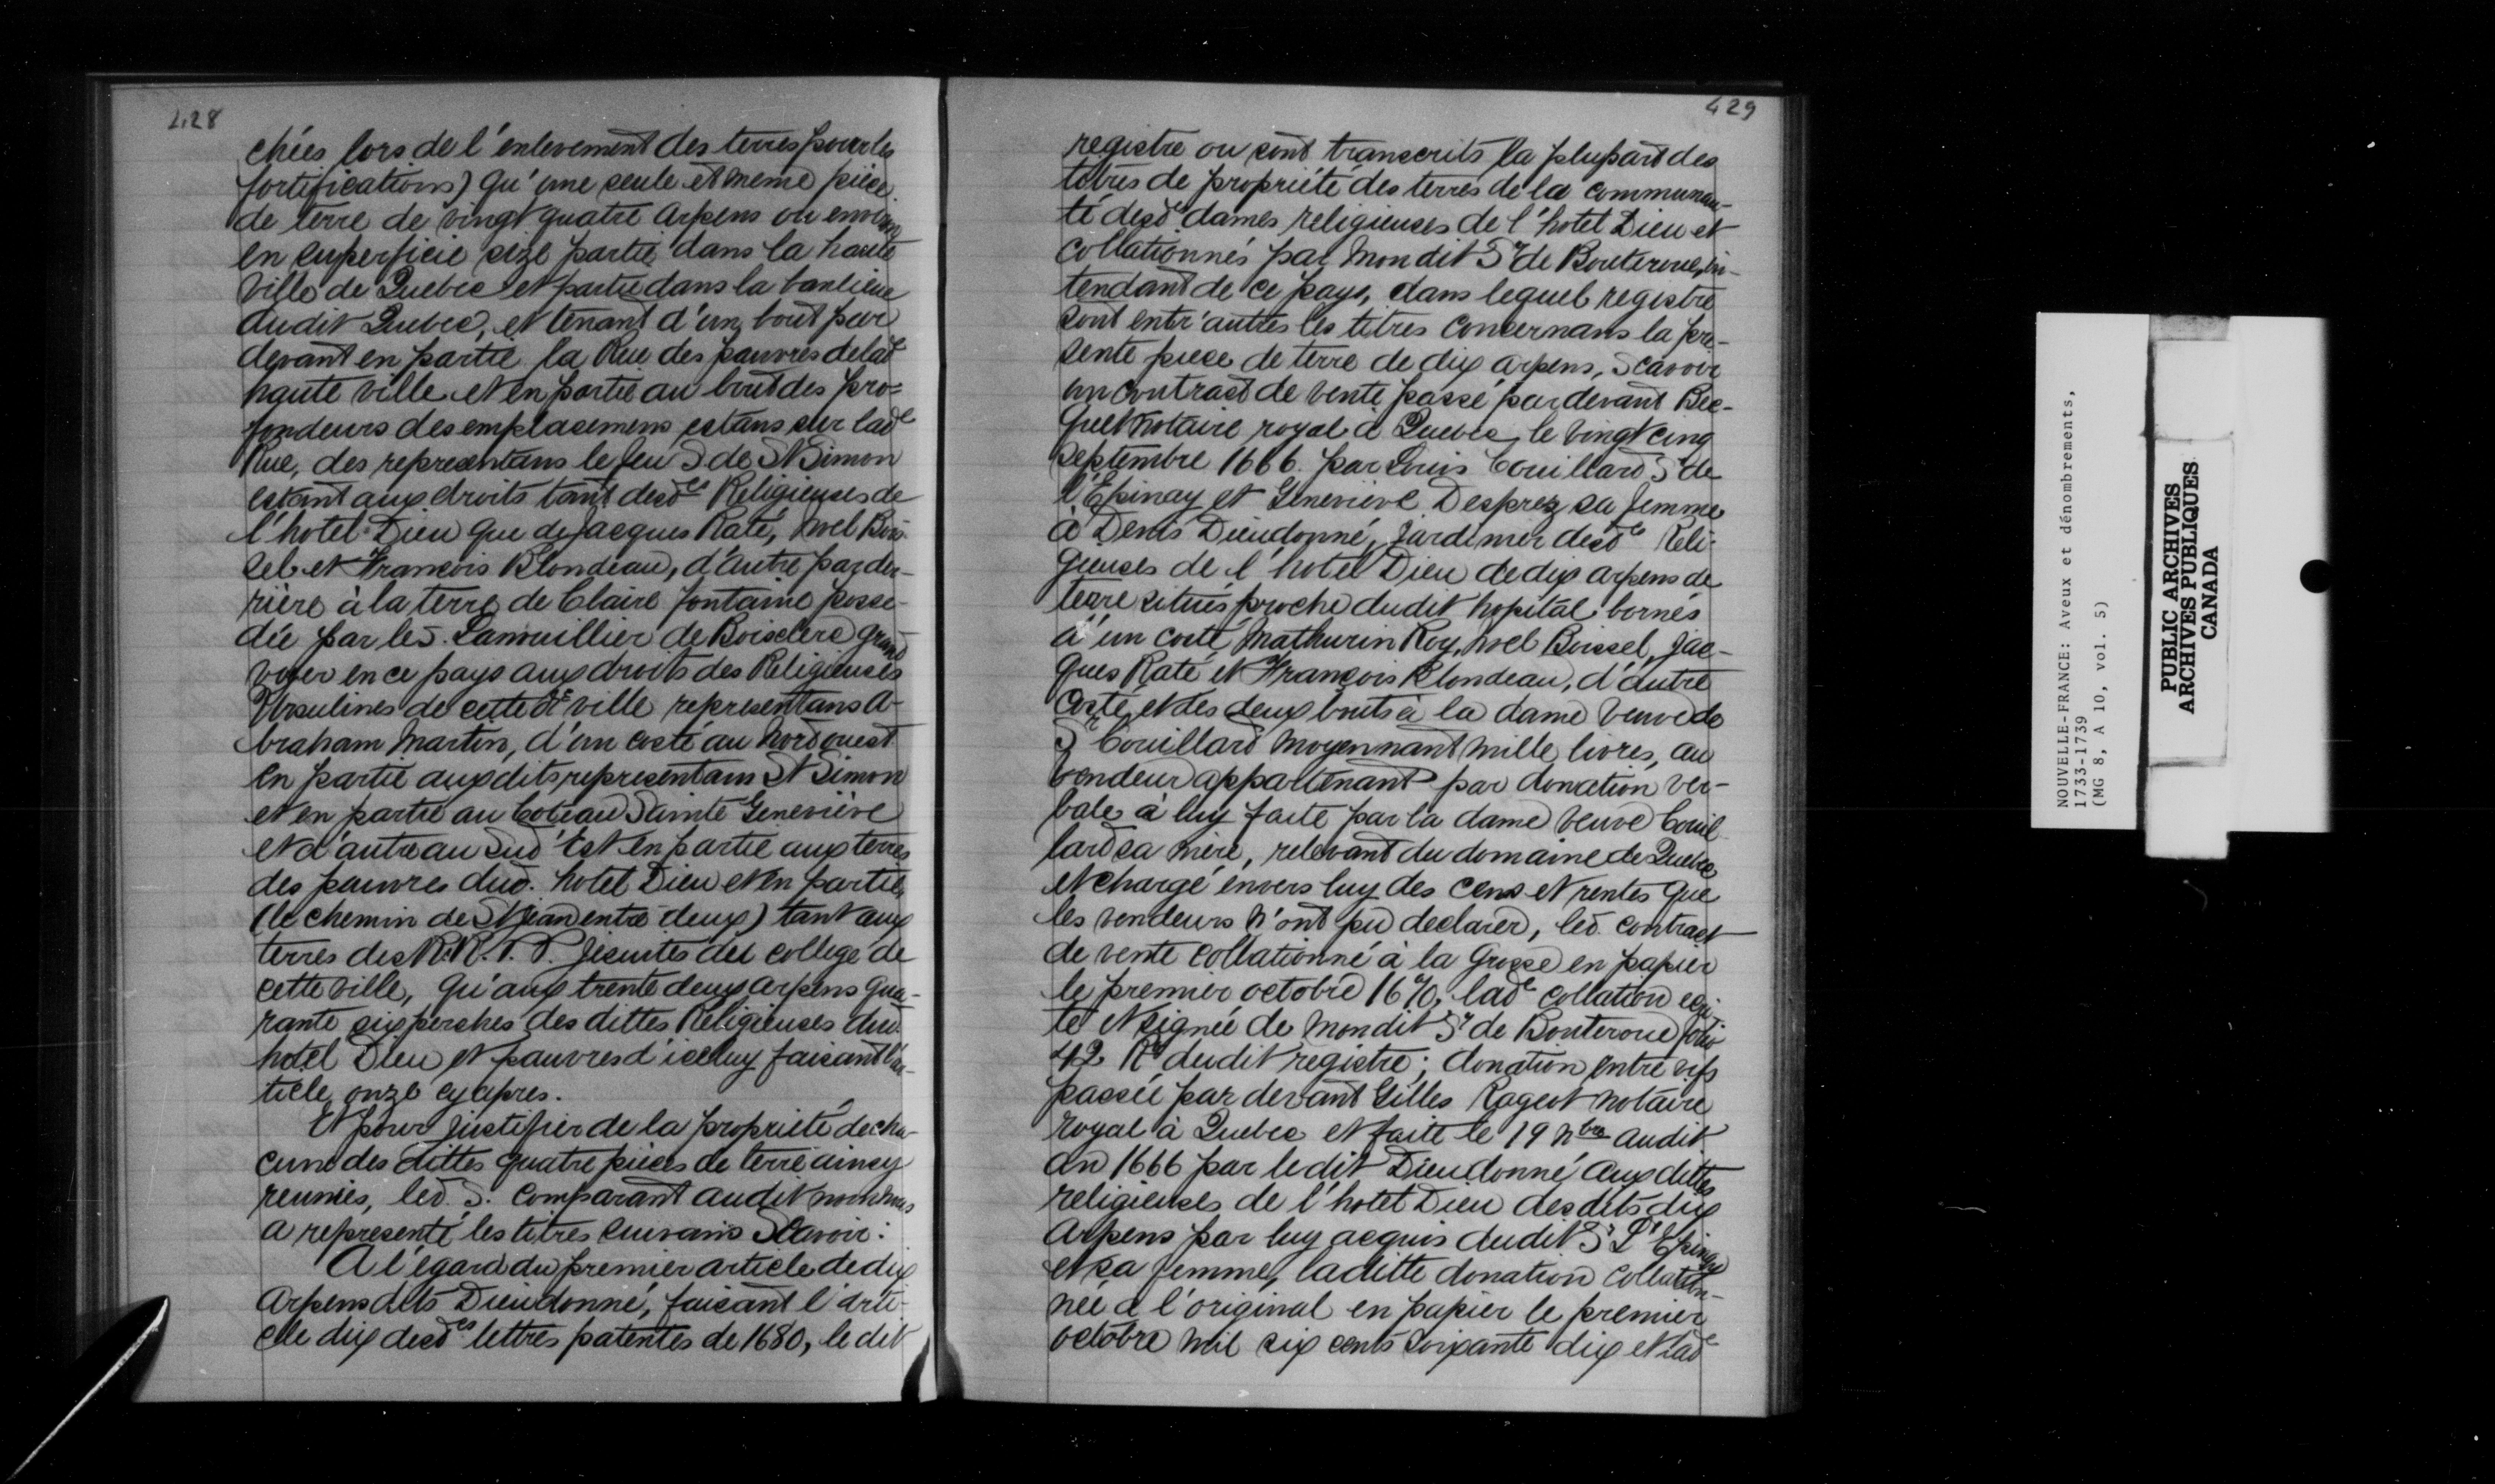 428
chées lors de l'enlevement des terres pour les
fortifications) qu'une seule et meme piece
de terre de vingt quatre arpens ou environ
en superficie size partie dans la haute
Ville de Quebec et partie dans la banlieue
dudit Quebec, et tenant d'un bout par
devant en partie la Rue des pauvres de lad.e
haute ville et en partie au bout des pro=
fondeurs des emplasemens estans sur lad.e
Rue, des representans le feu S de St Simon
estant aux droits tant desd.es Religieuses de
l'hotel-Dieu que de Jacques Raté, Noel Bois-
sel et François Blondeau, d'autre par der-
rière à la terre de Claire fontaine posse-
dée par le S. Lanouillier de Boisclerc grand
voyer en ce pays aux droits des Religieuses
Ursulines de cette d.e ville representans A-
braham Martin, d'un costé au Nord ouest
en partie aux dits representans St Simon
et en partie au Coteau Sainte Geneviève
et d'autre au Sud Est en partie aux terres
des pauvres dud. hotel Dieu et en partie,
(le chemin de St Jean entre deux) tant aux
terres des R.R. P.P. Jesuites du college de
cette ville, qu'aux trente deux arpens qua-
rante six perches des dittes Religieuses dud.
hotel Dieu et pauvres d'iceluy faisant l'ar-
ticle onze cy apres.
Et pour justifier de la propriété de cha-
cune des dittes quatre pieces de terre ainsy
reunies, led. S. Comparant audit nom nous
a representé les titres suivans Scavoir:
A l'égard du premier article de dix
Arpens dits Dieudonné, faisant l'arti-
cle dix desd.es lettres patentes de 1680, le dit
429
registre ou sont transcrits la plupart des
titres de propriété des terres de la communau-
té desd.e dames religieuses de l'hotel Dieu et
collationnés par Mondit S.r de Bouteroue, in-
tendant de ce pays, dans lequel registre
sont entr'autres les titres concernans la pre-
sente piece de terre de dix arpens, Scavoir
un contract de vente passé par devant Bec-
quet notaire royal à Quebec le vingt cinq
septembre 1666. par Louis Couillard S.r de
l'Epinay et Geneviève Desprez sa femme
à Denis Dieudonné, Jardinier desd.e Reli-
gieuses de l'hotel Dieu de dix arpens de
terre situés proche dudit hopital bornés
d'un costé Mathurin Roy, Noel Boissel, Jac-
ques Raté et François Blondeau, d'autre
costé et des deux bouts à la dame veuve de
S.r Couillard moyennant mille livres, au
vendeur appartenant par donation ver-
bale à luy faite par la dame veuve Couil-
lard sa mère, relevant du domaine de Quebec
et chargé envers luy des cens et rentes que
les vendeurs n'ont pu declarer, led. contract
de vente collationné à la grosse en papier
le premier octobre 1670, lad.e collation ecri-
te et signée de Mondit S.r de Bouteroue folio
42 R.o dudit registre; donation entre vifs
passée par devant Gilles Rageot notaire
royal à Quebec et faite le 19 9bre audit
an 1666 par ledit Dieudonné aux dittes
religieuses de l'hotel Dieu desdits dix
arpens par luy acquis dudit S.r L'Epinay
et sa femme, laditte donation collation-
née à l'original en papier le premier
octobre mil six cents soixante dix et lad.e
NOUVELLE-FRANCE: Aveux et dénombrements,
1733-1739
(MG 8, A 10, vol. 5)
PUBLIC ARCHIVES
ARCHIVES PUBLIQUES
CANADA